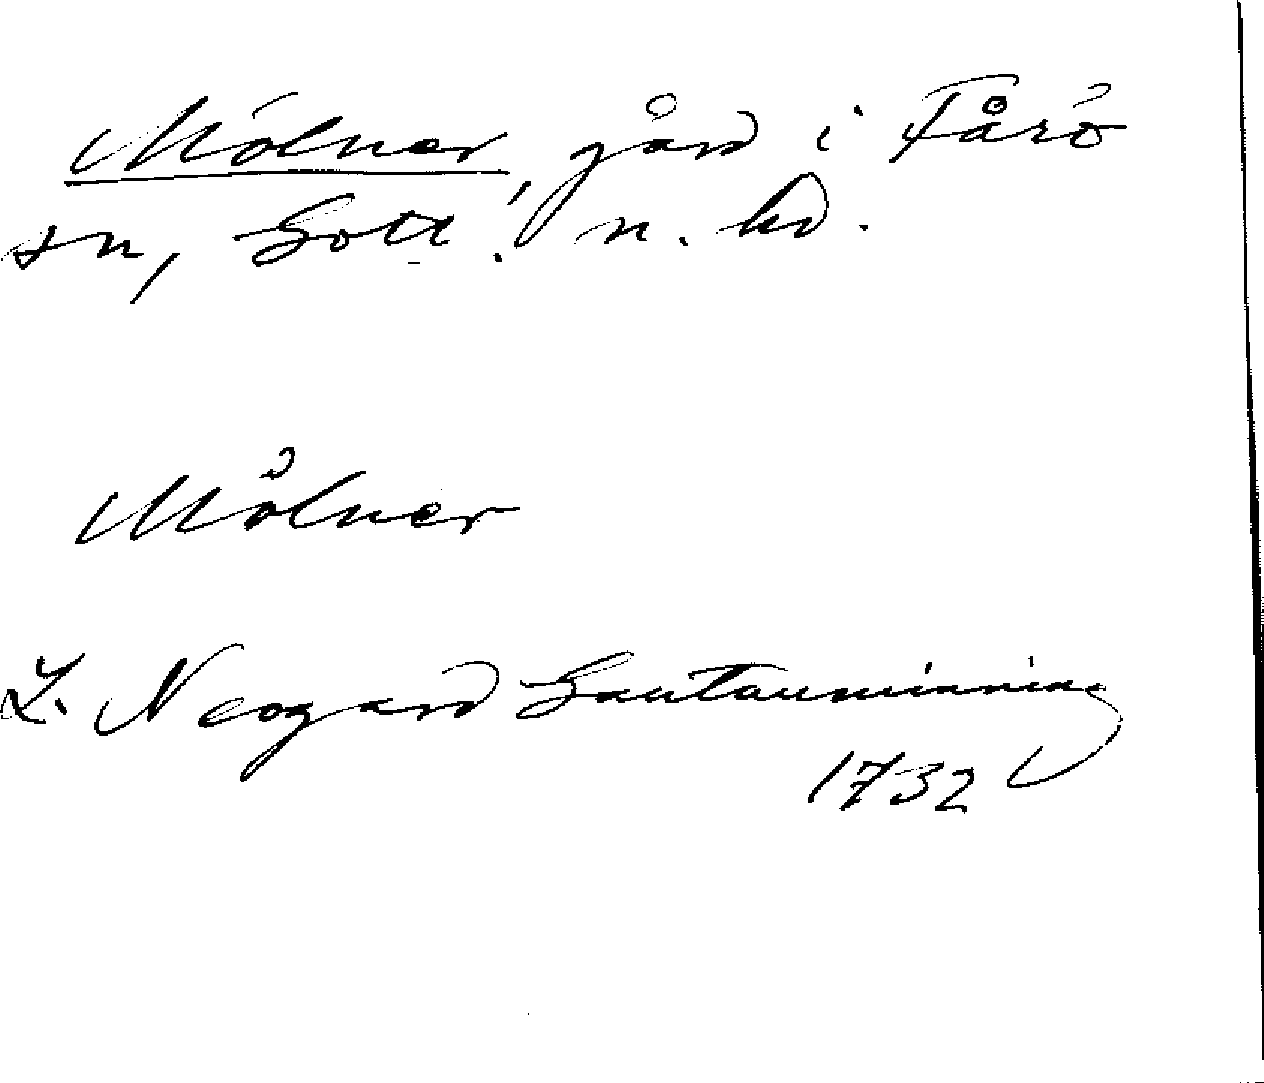 Mölner, gård i Fårö
sn, Gotl. n. hd.
Mölner
L. Neogard Gautauminning
1732